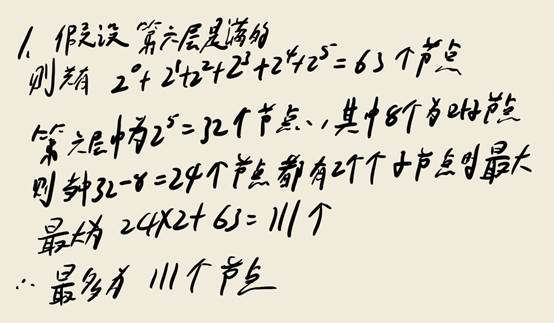 1、假设第六层是满的
则共有 2⁰+2¹+2²+2³+2⁴+2⁵=63个节点
第六层中有2⁵=32个节点,其中8个为叶子节点
则剩32-8=24个节点都有2个子节点时最大
最大为 24×2+63=111个
∴ 最多有 111个节点